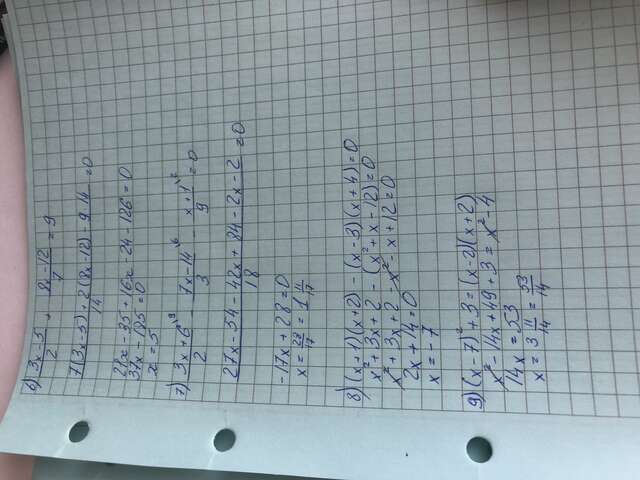 6) (3x-5)/2 + (8x-12)/7 = 9
(7(3x-5)+2(8x-12)-9·14)/14 = 0
28x-35+16x-24-126=0
37x-185=0
x=5
7) (3x+6^\9)/2 - (7x-14^\6)/3 - (x+1^\2)/9 = 0
(27x-54-42x+84-2x-2)/18 = 0
-17x+28=0
x = 28/17 = 1 11/17
8) (x+1)(x+2)-(x-3)(x+4)=0
x²+3x+2-(x²+x-12)=0
x²+3x+2-x²-x+12=0
2x+14=0
x=-7
9) (x-7)²+3=(x-2)(x+2)
x²-14x+49+3=x²-4
14x=53
x = 3 11/14 = 53/14